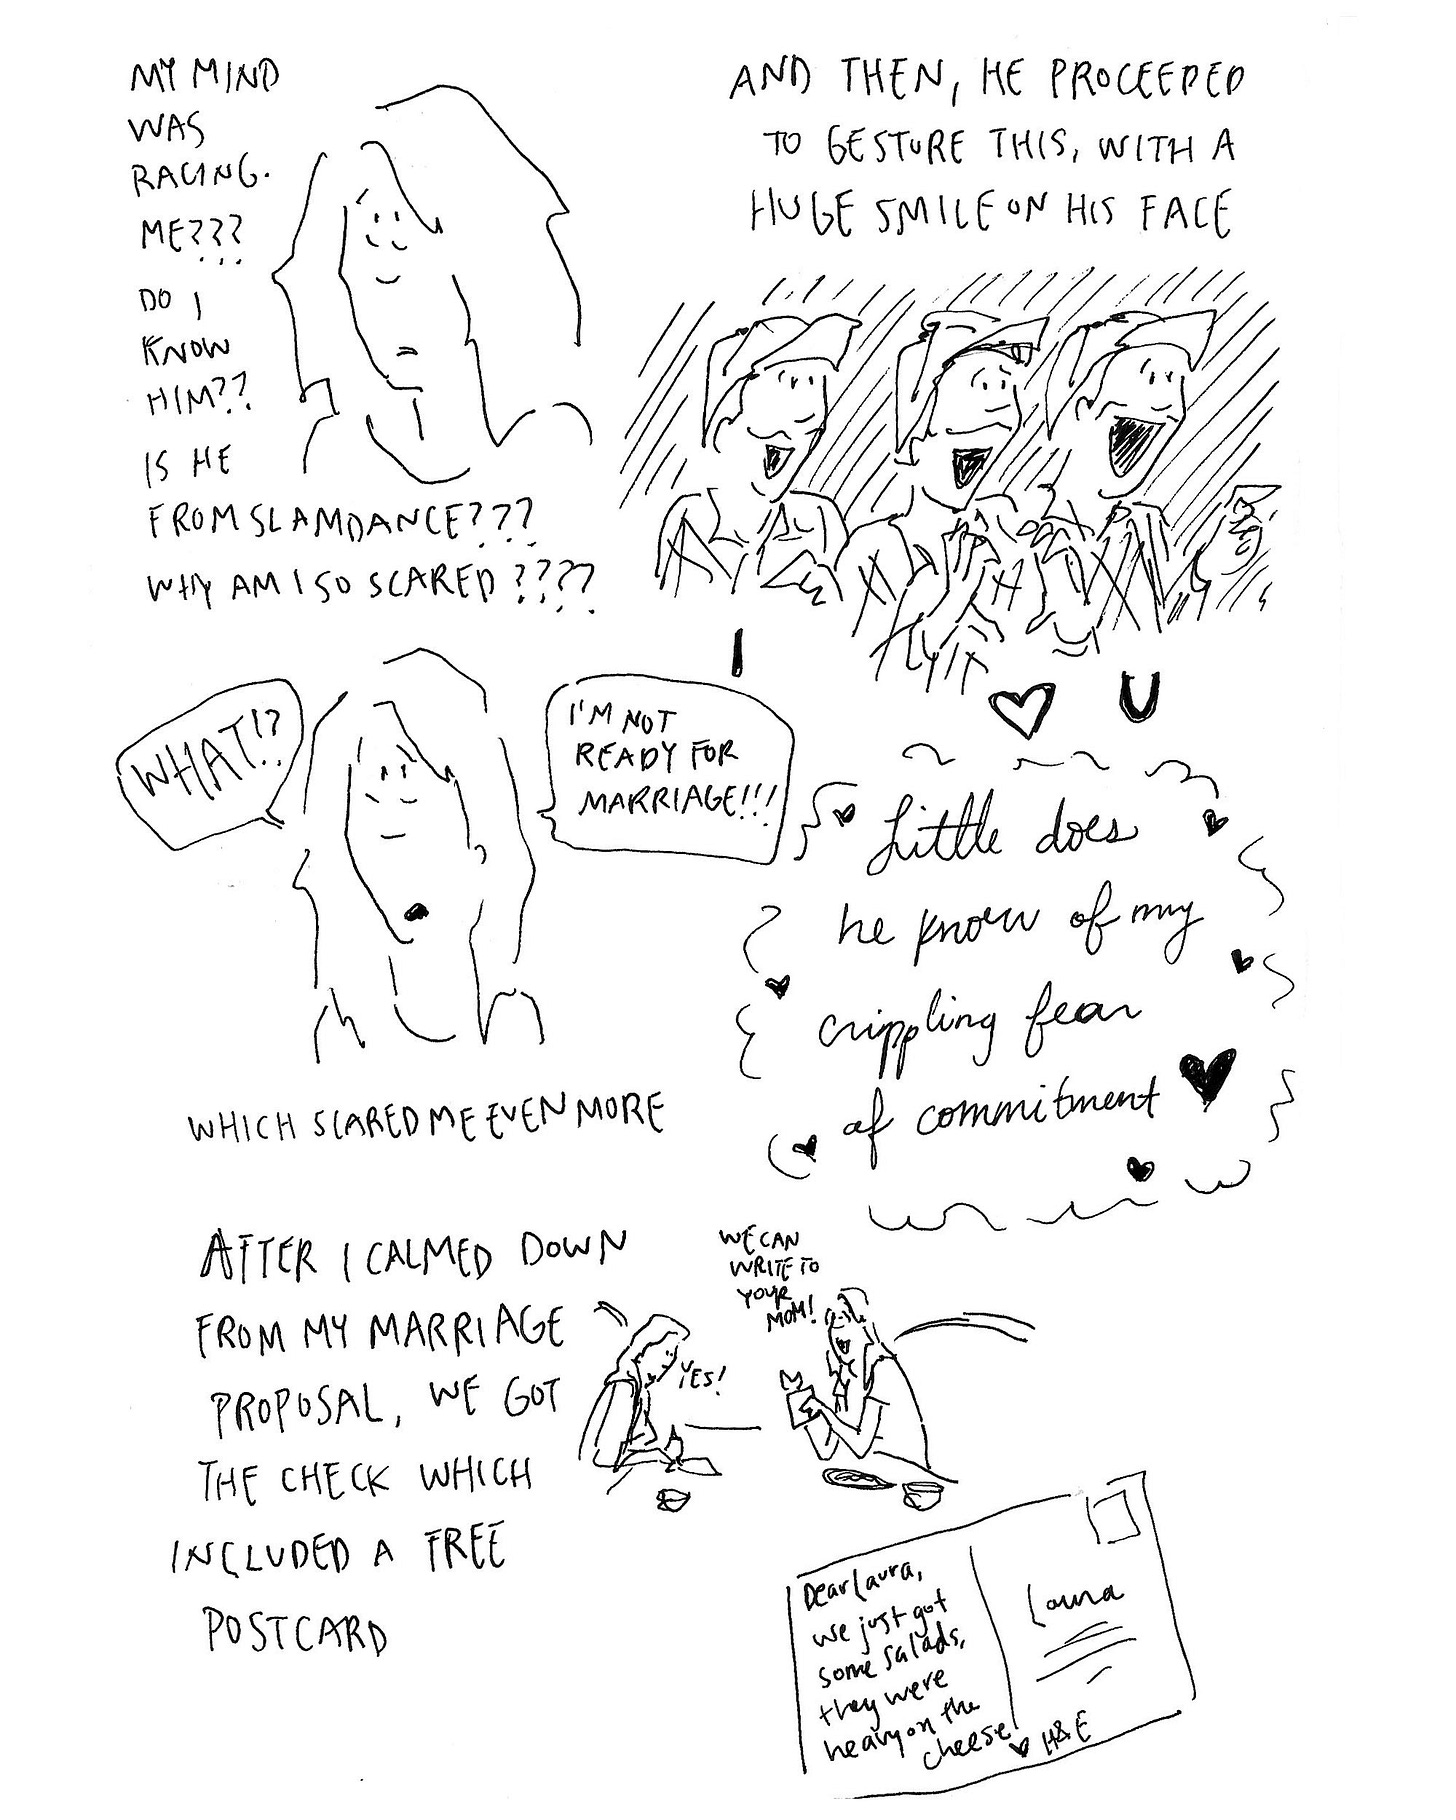 MY MIND
WAS
RACING.
ME???
DO I
KNOW
HIM??
IS HE
FROM SLAMDANCE???
WHY AM I SO SCARED????
AND THEN, HE PROCEEDED
TO GESTURE THIS, WITH A
HUGE SMILE ON HIS FACE
I
♡ U
WHAT!?
I'M NOT
READY FOR
MARRIAGE!!!
Little does
he know of my
crippling fear
of commitment
WHICH SCARED ME EVEN MORE
AFTER I CALMED DOWN
FROM MY MARRIAGE
PROPOSAL, WE GOT
THE CHECK WHICH
INCLUDED A FREE
POSTCARD
WE CAN
WRITE TO
YOUR
MOM!
YES!
Dear Laura,
we just got
some salads,
they were
heavy on the
cheese
♥ H&E
Laura